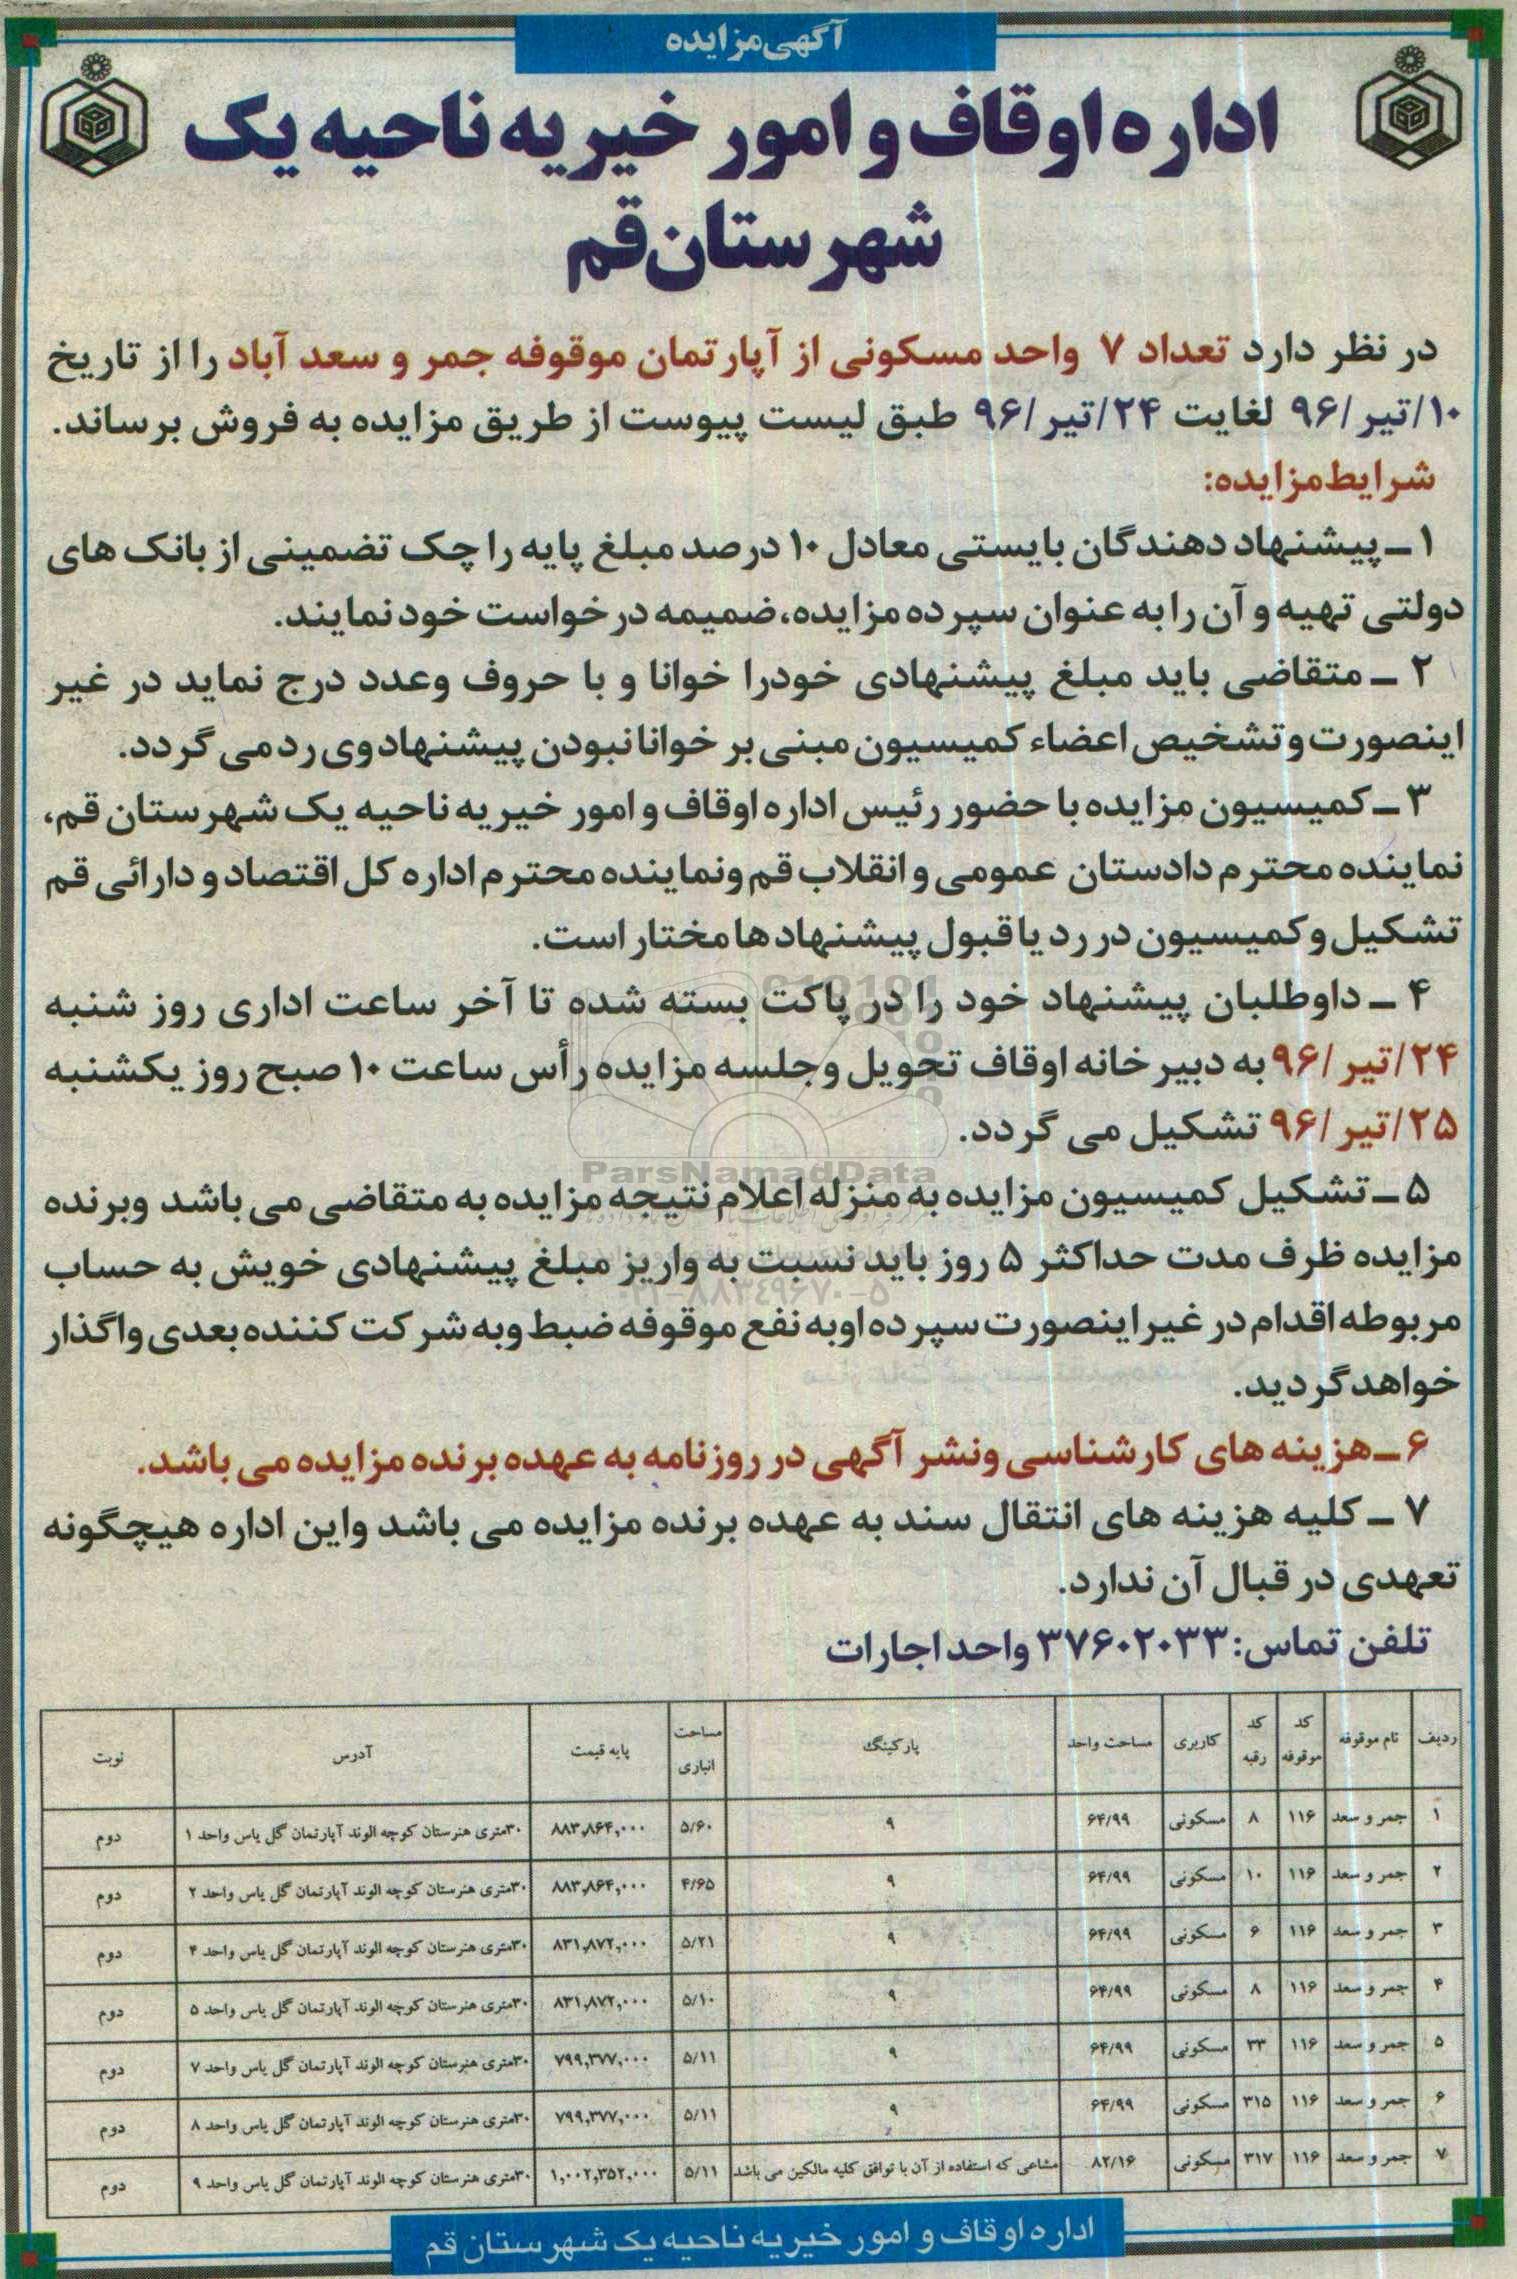 آگهی مزایده
اداره اوقاف و امور خیریه ناحیه یک
شهرستان قم
در نظر دارد تعداد ۷ واحد مسکونی از آپارتمان موقوفه جمر و سعد آباد را از تاریخ
۱۰/تیر/۹۶ لغایت ۲۴/تیر/۹۶ طبق لیست پیوست از طریق مزایده به فروش برساند.
شرایط مزایده:
۱ ـ پیشنهاد دهندگان بایستی معادل ۱۰ درصد مبلغ پایه را چک تضمینی از بانک های
دولتی تهیه و آن را به عنوان سپرده مزایده، ضمیمه درخواست خود نمایند.
۲ ـ متقاضی باید مبلغ پیشنهادی خودرا خوانا و با حروف وعدد درج نماید در غیر
اینصورت و تشخیص اعضاء کمیسیون مبنی بر خوانا نبودن پیشنهاد وی رد می گردد.
۳ ـ کمیسیون مزایده با حضور رئیس اداره اوقاف و امور خیریه ناحیه یک شهرستان قم،
نماینده محترم دادستان عمومی و انقلاب قم ونماینده محترم اداره کل اقتصاد و دارائی قم
تشکیل و کمیسیون در رد یا قبول پیشنهاد ها مختار است.
۴ ـ داوطلبان پیشنهاد خود را در پاکت بسته شده تا آخر ساعت اداری روز شنبه
۲۴/تیر/۹۶ به دبیرخانه اوقاف تحویل وجلسه مزایده رأس ساعت ۱۰ صبح روز یکشنبه
۲۵/تیر/۹۶ تشکیل می گردد.
ParsNamadData
۵ ـ تشکیل کمیسیون مزایده به منزله اعلام نتیجه مزایده به متقاضی می باشد وبرنده
مزایده ظرف مدت حداکثر ۵ روز باید نسبت به واریز مبلغ پیشنهادی خویش به حساب
۰۲۱-۸۸۳۴۹۶۷۰-۵
مربوطه اقدام در غیر اینصورت سپرده اوبه نفع موقوفه ضبط وبه شرکت کننده بعدی واگذار
خواهد گردید.
۶ ـ هزینه های کارشناسی ونشر آگهی در روزنامه به عهده برنده مزایده می باشد.
۷ ـ کلیه هزینه های انتقال سند به عهده برنده مزایده می باشد واین اداره هیچگونه
تعهدی در قبال آن ندارد.
تلفن تماس: ۳۷۶۰۲۰۳۳ واحد اجارات
ردیف نام موقوفه کد موقوفه کد رقبه کاربری مساحت واحد پارکینگ مساحت انباری پایه قیمت آدرس نوبت
۱ جمر و سعد ۱۱۶ ۸ مسکونی ۶۴/۹۹ ۹ ۵/۶۰ ۸۸۳,۸۶۴,۰۰۰ ۳۰متری هنرستان کوچه الوند آپارتمان گل یاس واحد ۱ دوم
۲ جمر و سعد ۱۱۶ ۱۰ مسکونی ۶۴/۹۹ ۹ ۴/۶۵ ۸۸۳,۸۶۴,۰۰۰ ۳۰متری هنرستان کوچه الوند آپارتمان گل یاس واحد ۲ دوم
۳ جمر و سعد ۱۱۶ ۶ مسکونی ۶۴/۹۹ ۹ ۵/۲۱ ۸۳۱,۸۷۲,۰۰۰ ۳۰متری هنرستان کوچه الوند آپارتمان گل یاس واحد ۴ دوم
۴ جمر و سعد ۱۱۶ ۸ مسکونی ۶۴/۹۹ ۹ ۵/۱۰ ۸۳۱,۸۷۲,۰۰۰ ۳۰متری هنرستان کوچه الوند آپارتمان گل یاس واحد ۵ دوم
۵ جمر و سعد ۱۱۶ ۳۳ مسکونی ۶۴/۹۹ ۹ ۵/۱۱ ۷۹۹,۳۷۷,۰۰۰ ۳۰متری هنرستان کوچه الوند آپارتمان گل یاس واحد ۷ دوم
۶ جمر و سعد ۱۱۶ ۳۱۵ مسکونی ۶۴/۹۹ ۹ ۵/۱۱ ۷۹۹,۳۷۷,۰۰۰ ۳۰متری هنرستان کوچه الوند آپارتمان گل یاس واحد ۸ دوم
۷ جمر و سعد ۱۱۶ ۳۱۷ مسکونی ۸۲/۱۶ مشاعی که استفاده از آن با توافق کلیه مالکین می باشد ۵/۱۱ ۱,۰۰۲,۳۵۲,۰۰۰ ۳۰متری هنرستان کوچه الوند آپارتمان گل یاس واحد ۹ دوم
اداره اوقاف و امور خیریه ناحیه یک شهرستان قم